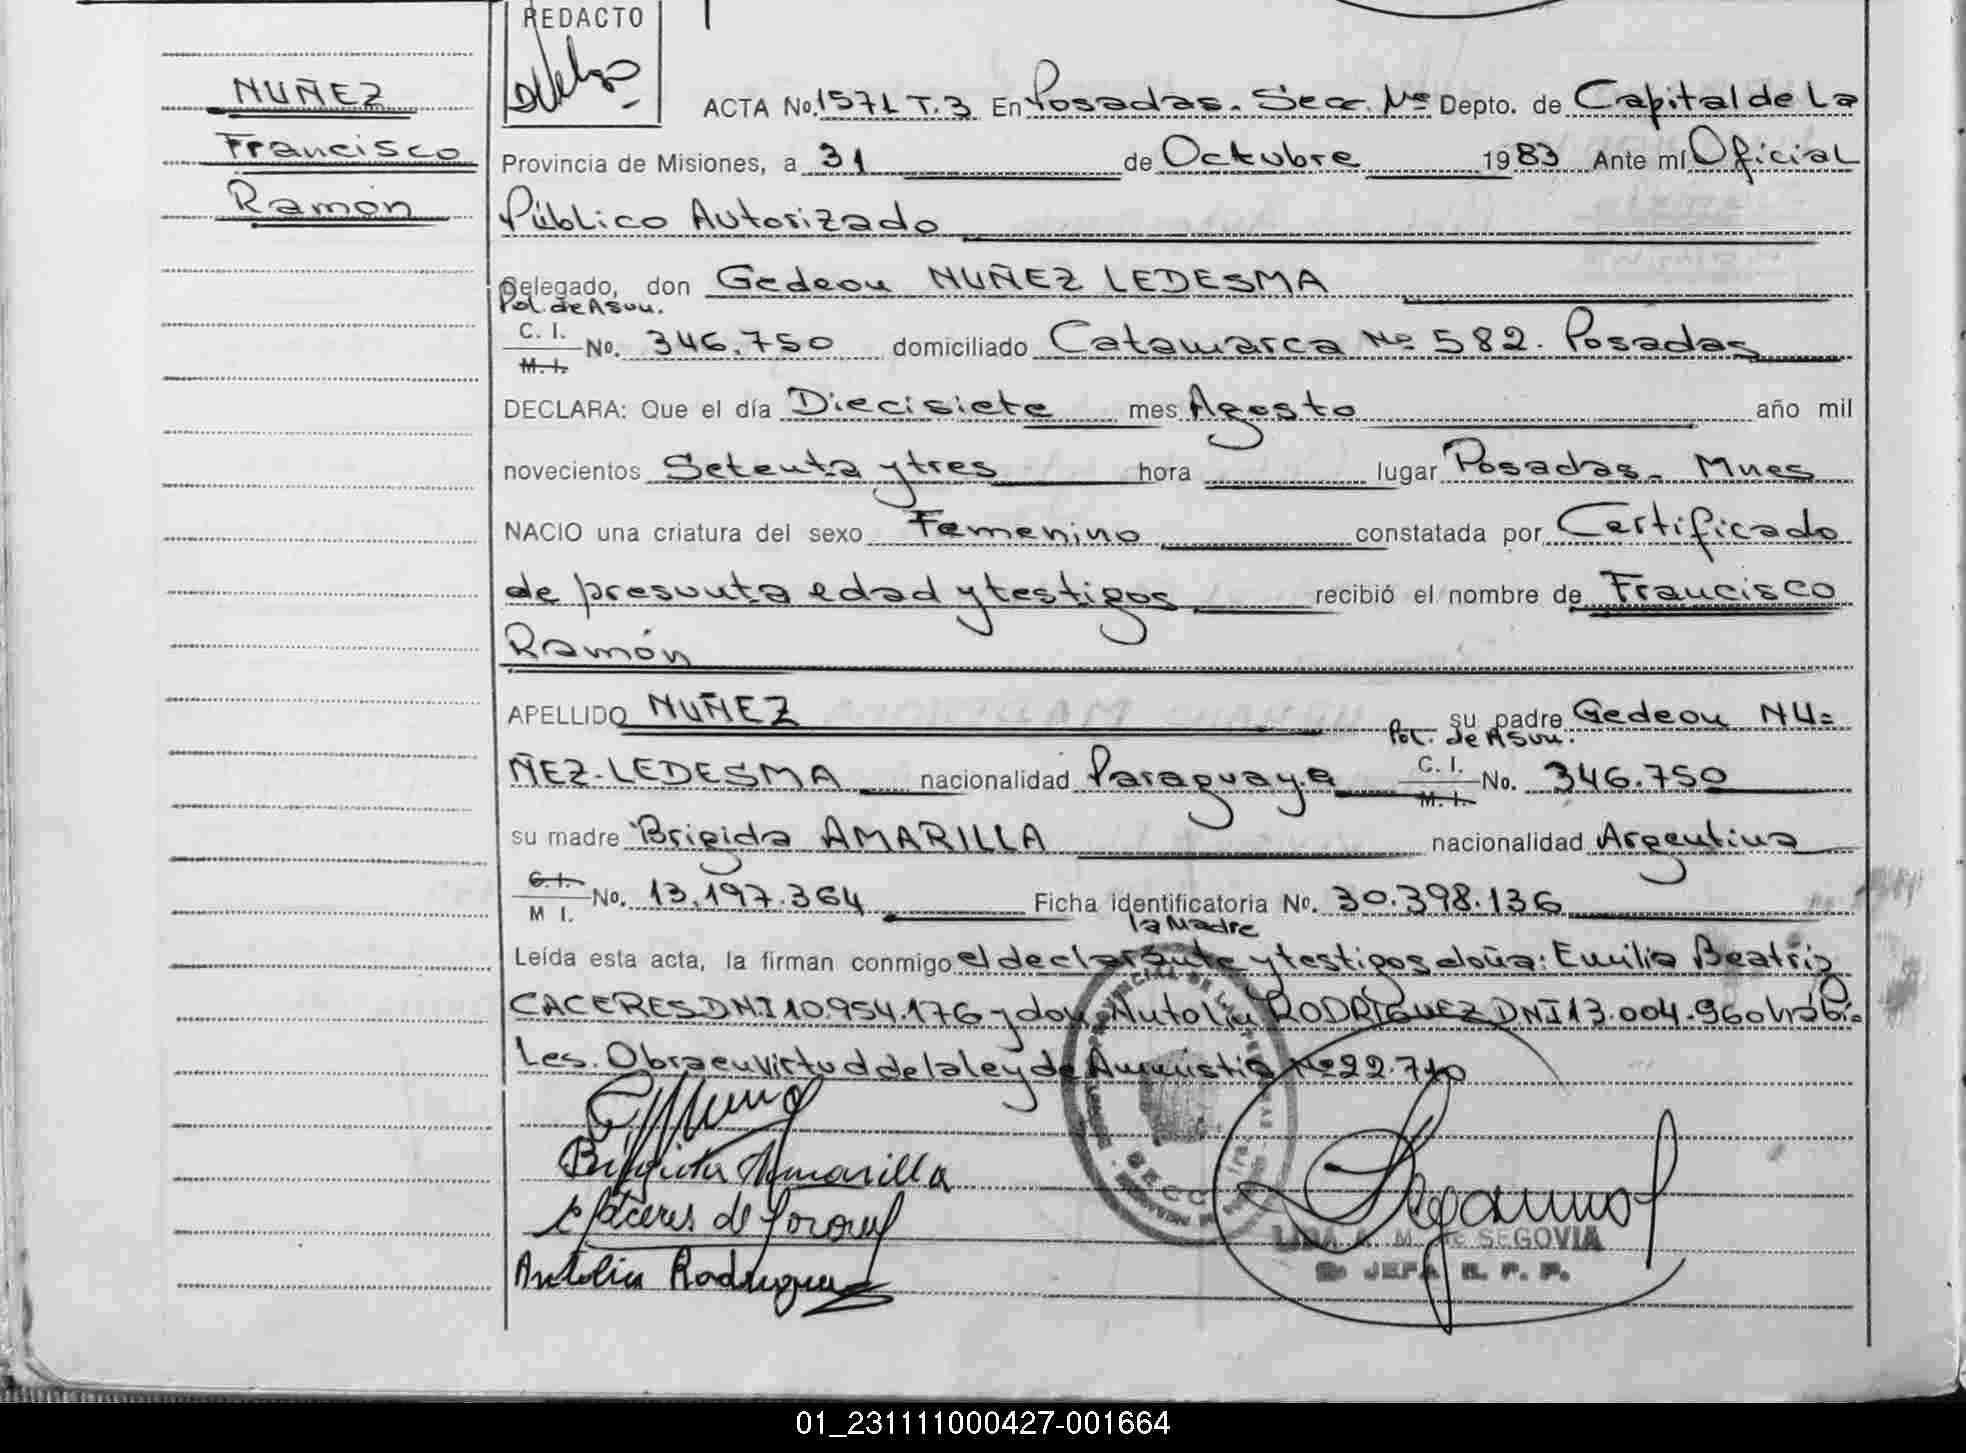 REDACTO
NUÑEZ
Francisco
Ramón
ACTA No. 1571 T.3 En Posadas. Secc. Nº Depto. de Capital de La
Provincia de Misiones, a 31 de Octubre 1983 Ante mí Oficial
Público Autorizado
Delegado, don Gedeou NUÑEZ LEDESMA
Pol. de Asun.
C. I.
M. I.
No. 346.750 domiciliado Catamarca Nº 582. Posadas
DECLARA: Que el día Diecisiete mes Agosto año mil
novecientos Setenta y tres hora lugar Posadas. Mnes
NACIO una criatura del sexo Femenino constatada por Certificado
de presunta edad y testigos recibió el nombre de Francisco
Ramón
APELLIDO NUÑEZ su padre Gedeou NU=
Pol. de Asun.
ÑEZ-LEDESMA nacionalidad Paraguaya C. I. M. I. No. 346.750
su madre Brigida AMARILLA nacionalidad Argentina
C. I.
M I.
No. 13.197.364 Ficha identificatoria No. 30.398.136
la Madre
Leída esta acta, la firman conmigo el declarante y testigos doña: Emilia Beatriz
CACERES DNI 10.954.176 y don Antolin RODRIGUEZ DNI 13.004.960 hábi=
les. Obra en virtud de la ley de Amnistia Nº 22.710
Brigida Amarilla
Caceres de
Antolin Rodriguez
LIDA A. M. de SEGOVIA
JEFA R. P. P.
01_231111000427-001664